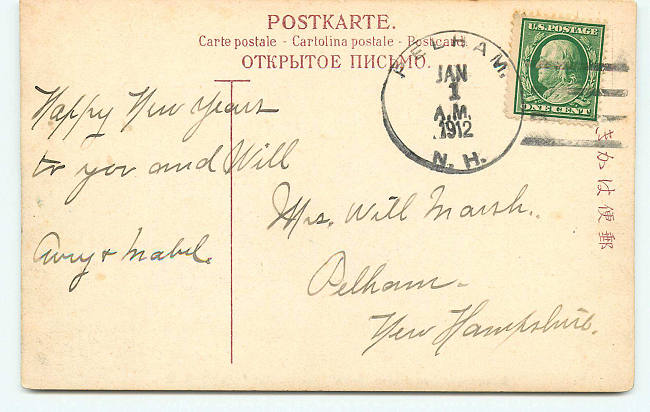 POSTKARTE.
Carte postale - Cartolina postale - Postcard.
ОТКРЫТОЕ ПИСЬМО.
PELHAM.
JAN
1
A.M.
1912
N. H.
U.S. POSTAGE
ONE CENT
郵便はかき
Happy New Years
to you and Will
Avery & Mabel.
Mrs. Will Marsh.
Pelham-
New Hampshire.